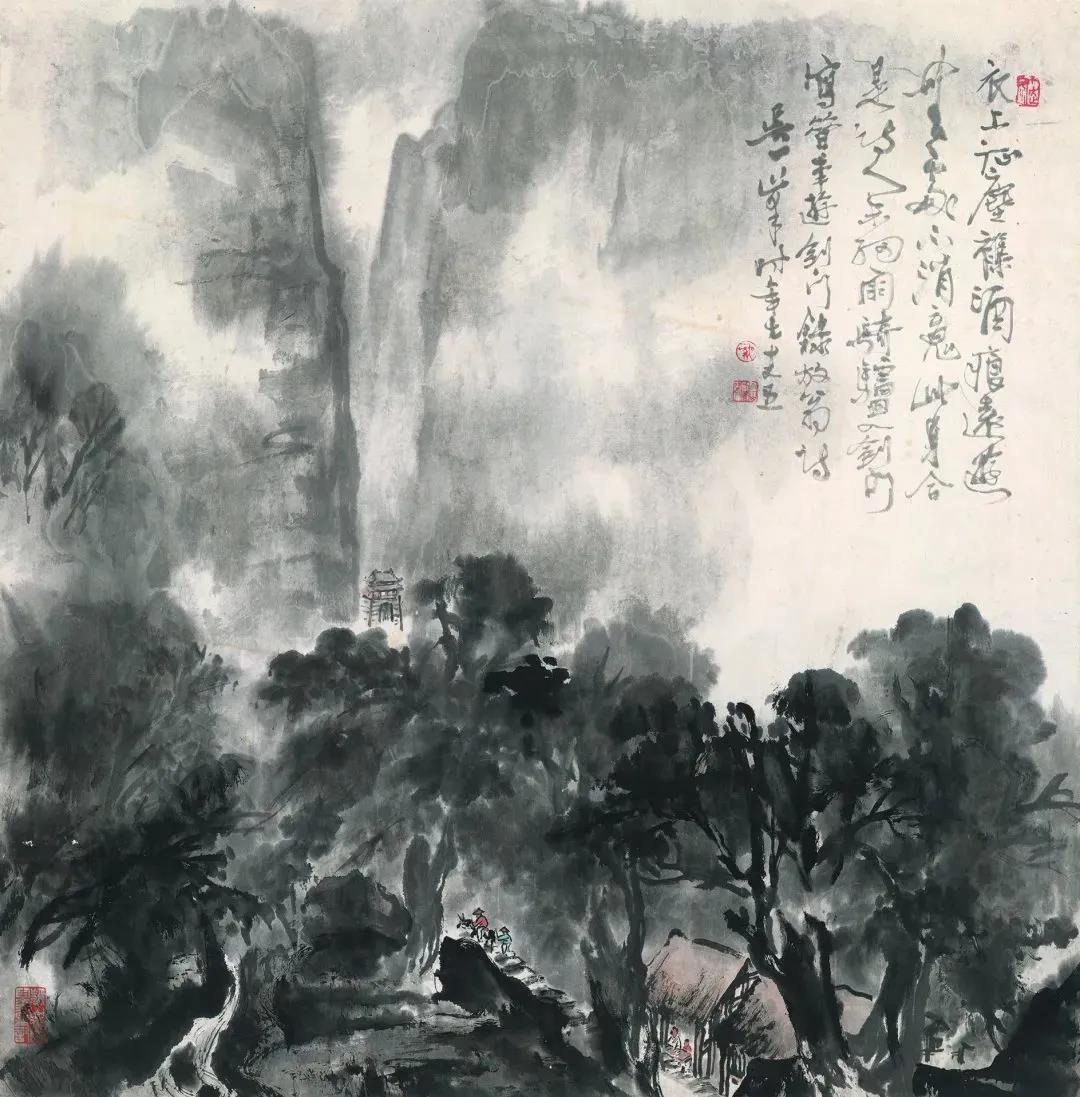 衣上征塵雜酒痕遠遊
無處不消魂此身合
是詩人未細雨騎驢入劍門
寫昔年遊劍門錄放翁詩
吳一峯時年七十又五